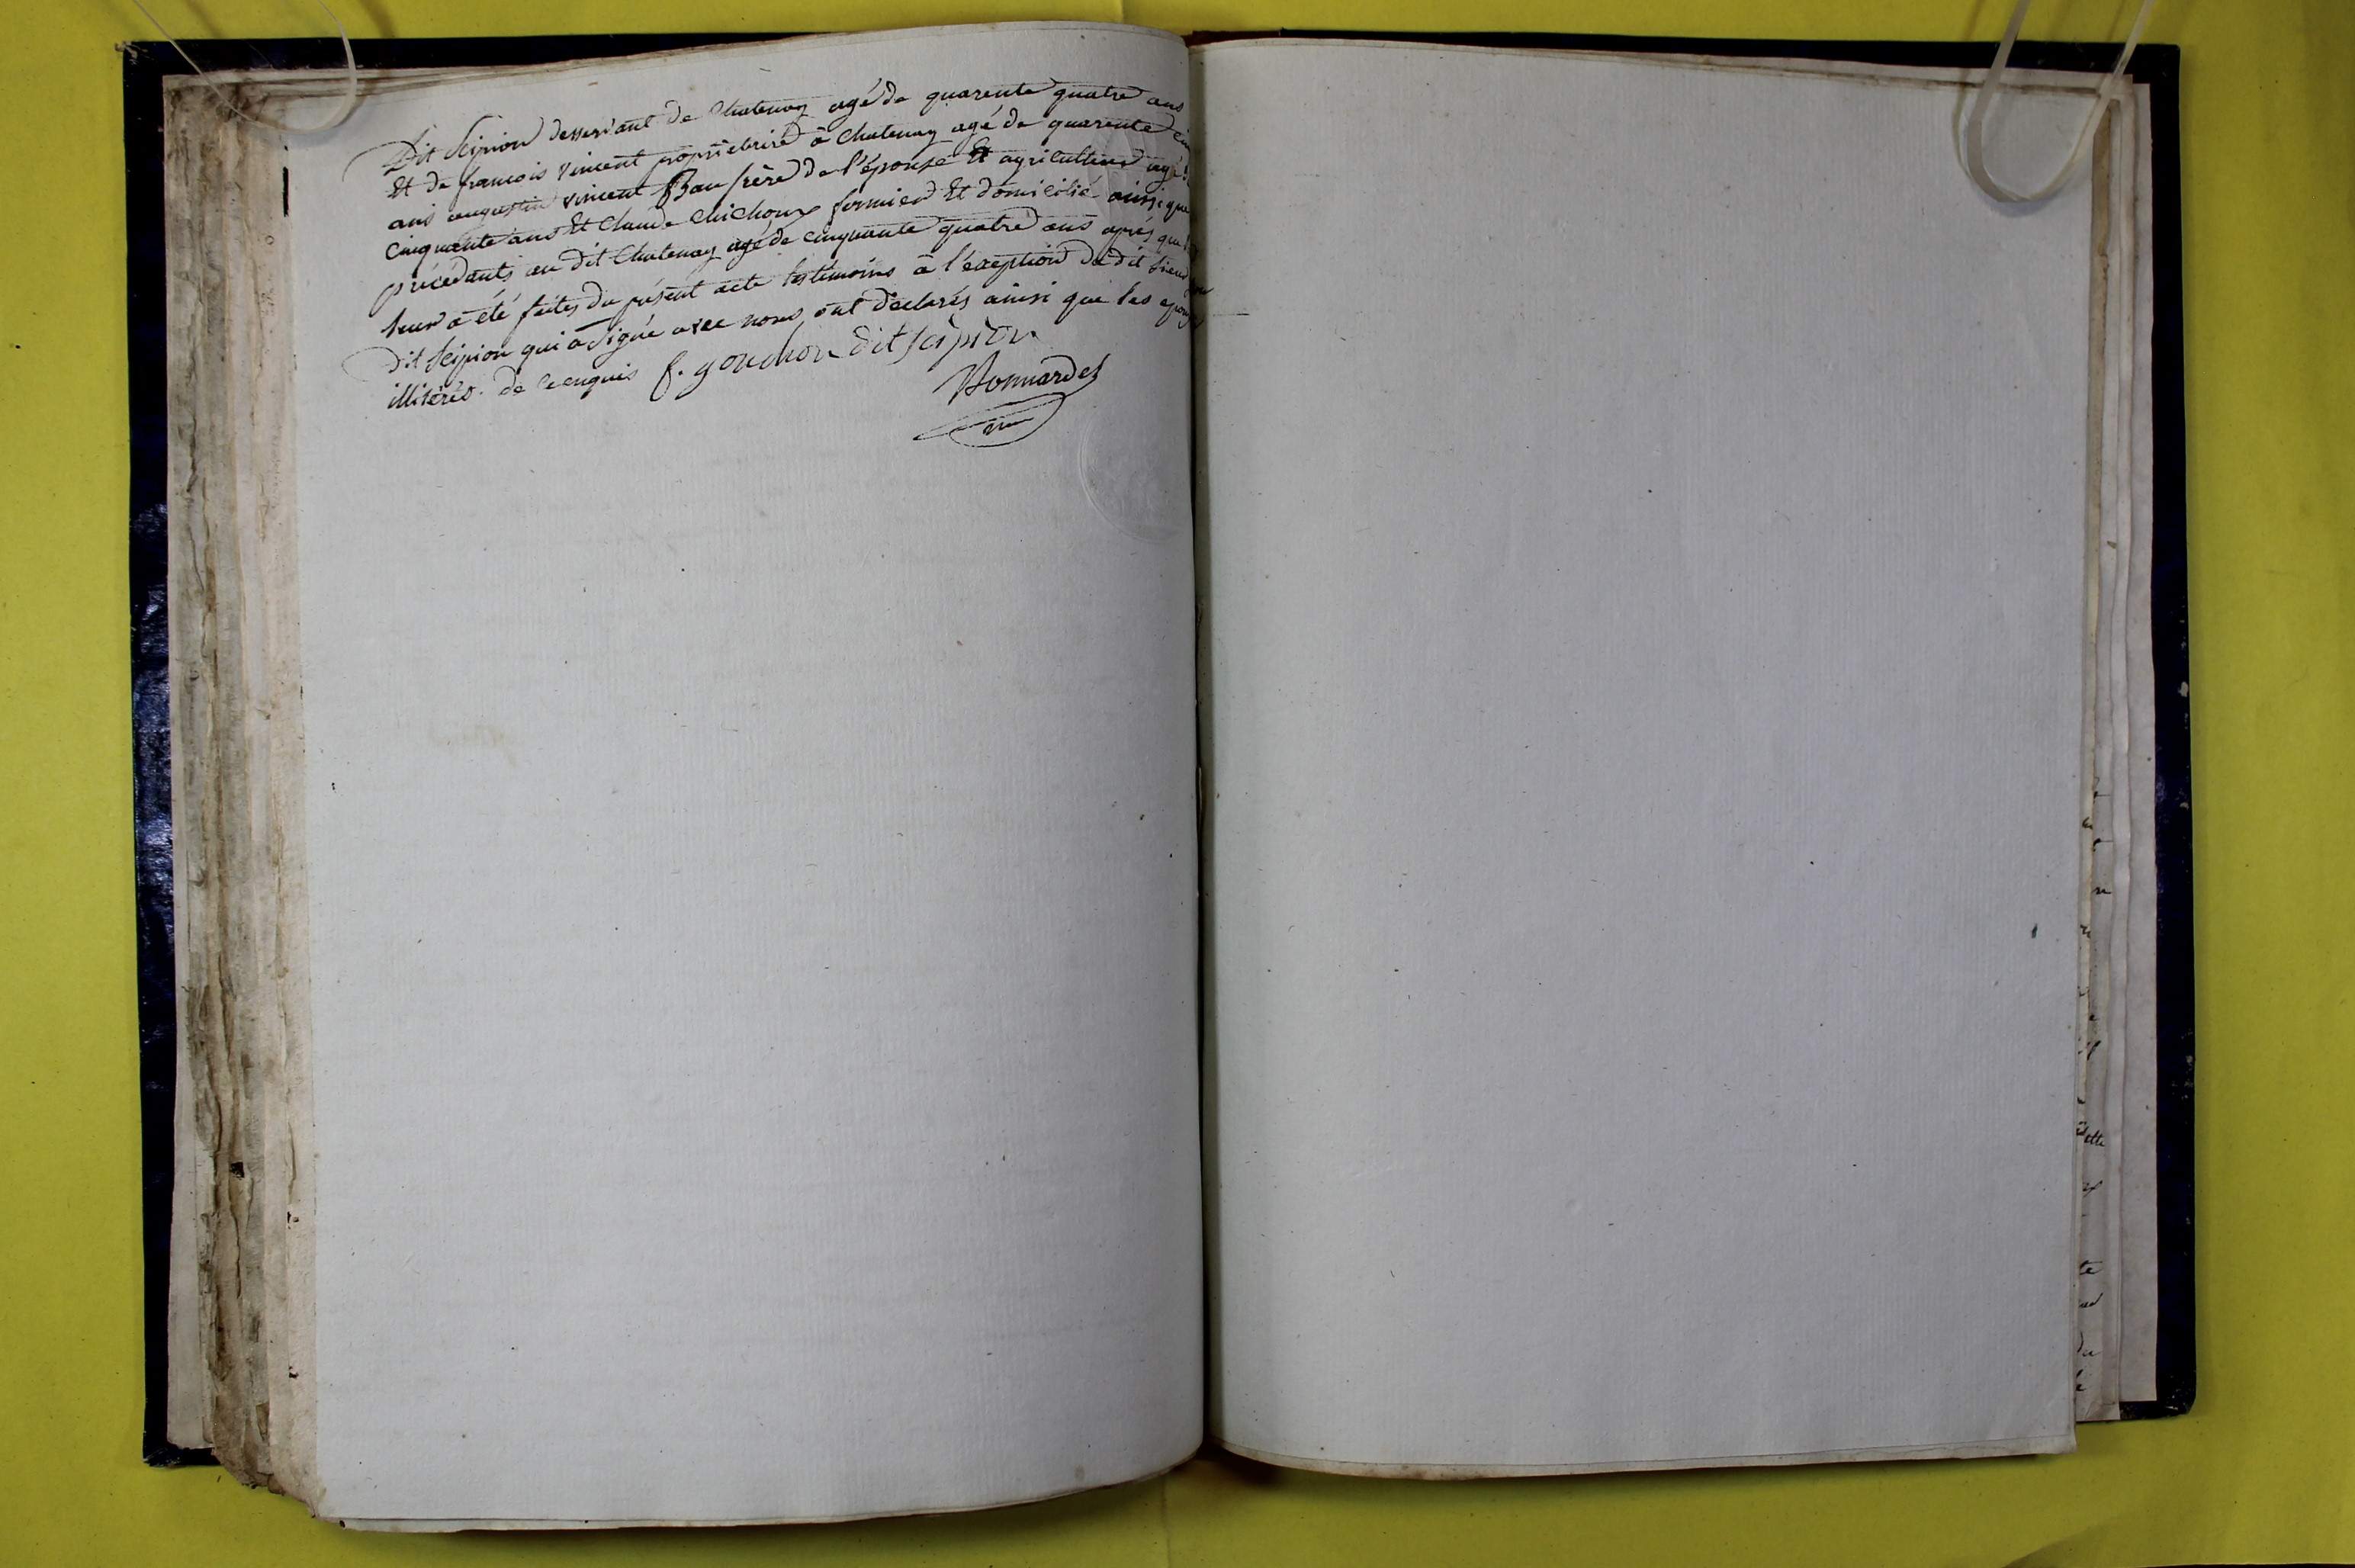 Dit Scipion desservant de Chatenay agé de quarente quatre ans
Et de francois vincent propriétaire à Chatenay agé de quarente
ans augustin vincent Beau frère de l'épouse Et agriculteur agé
cinquente ans Et Claude Chichoux fermier Et domicilié ainsi que
précédants au dit Chatenay agé de cinquante quatre ans après que
leur a été faites du présent acte les témoins à l'éxeption du dit sieur
Dit Scipion qui a signé avec nous ont déclarés ainsi que les epoux
illitérés. de ce enquis f. gonchon dit scipion
Bonnardel